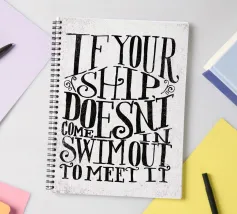 IF YOUR
SHIP
DOESNT
COME IN
SWIM OUT
TO MEET IT